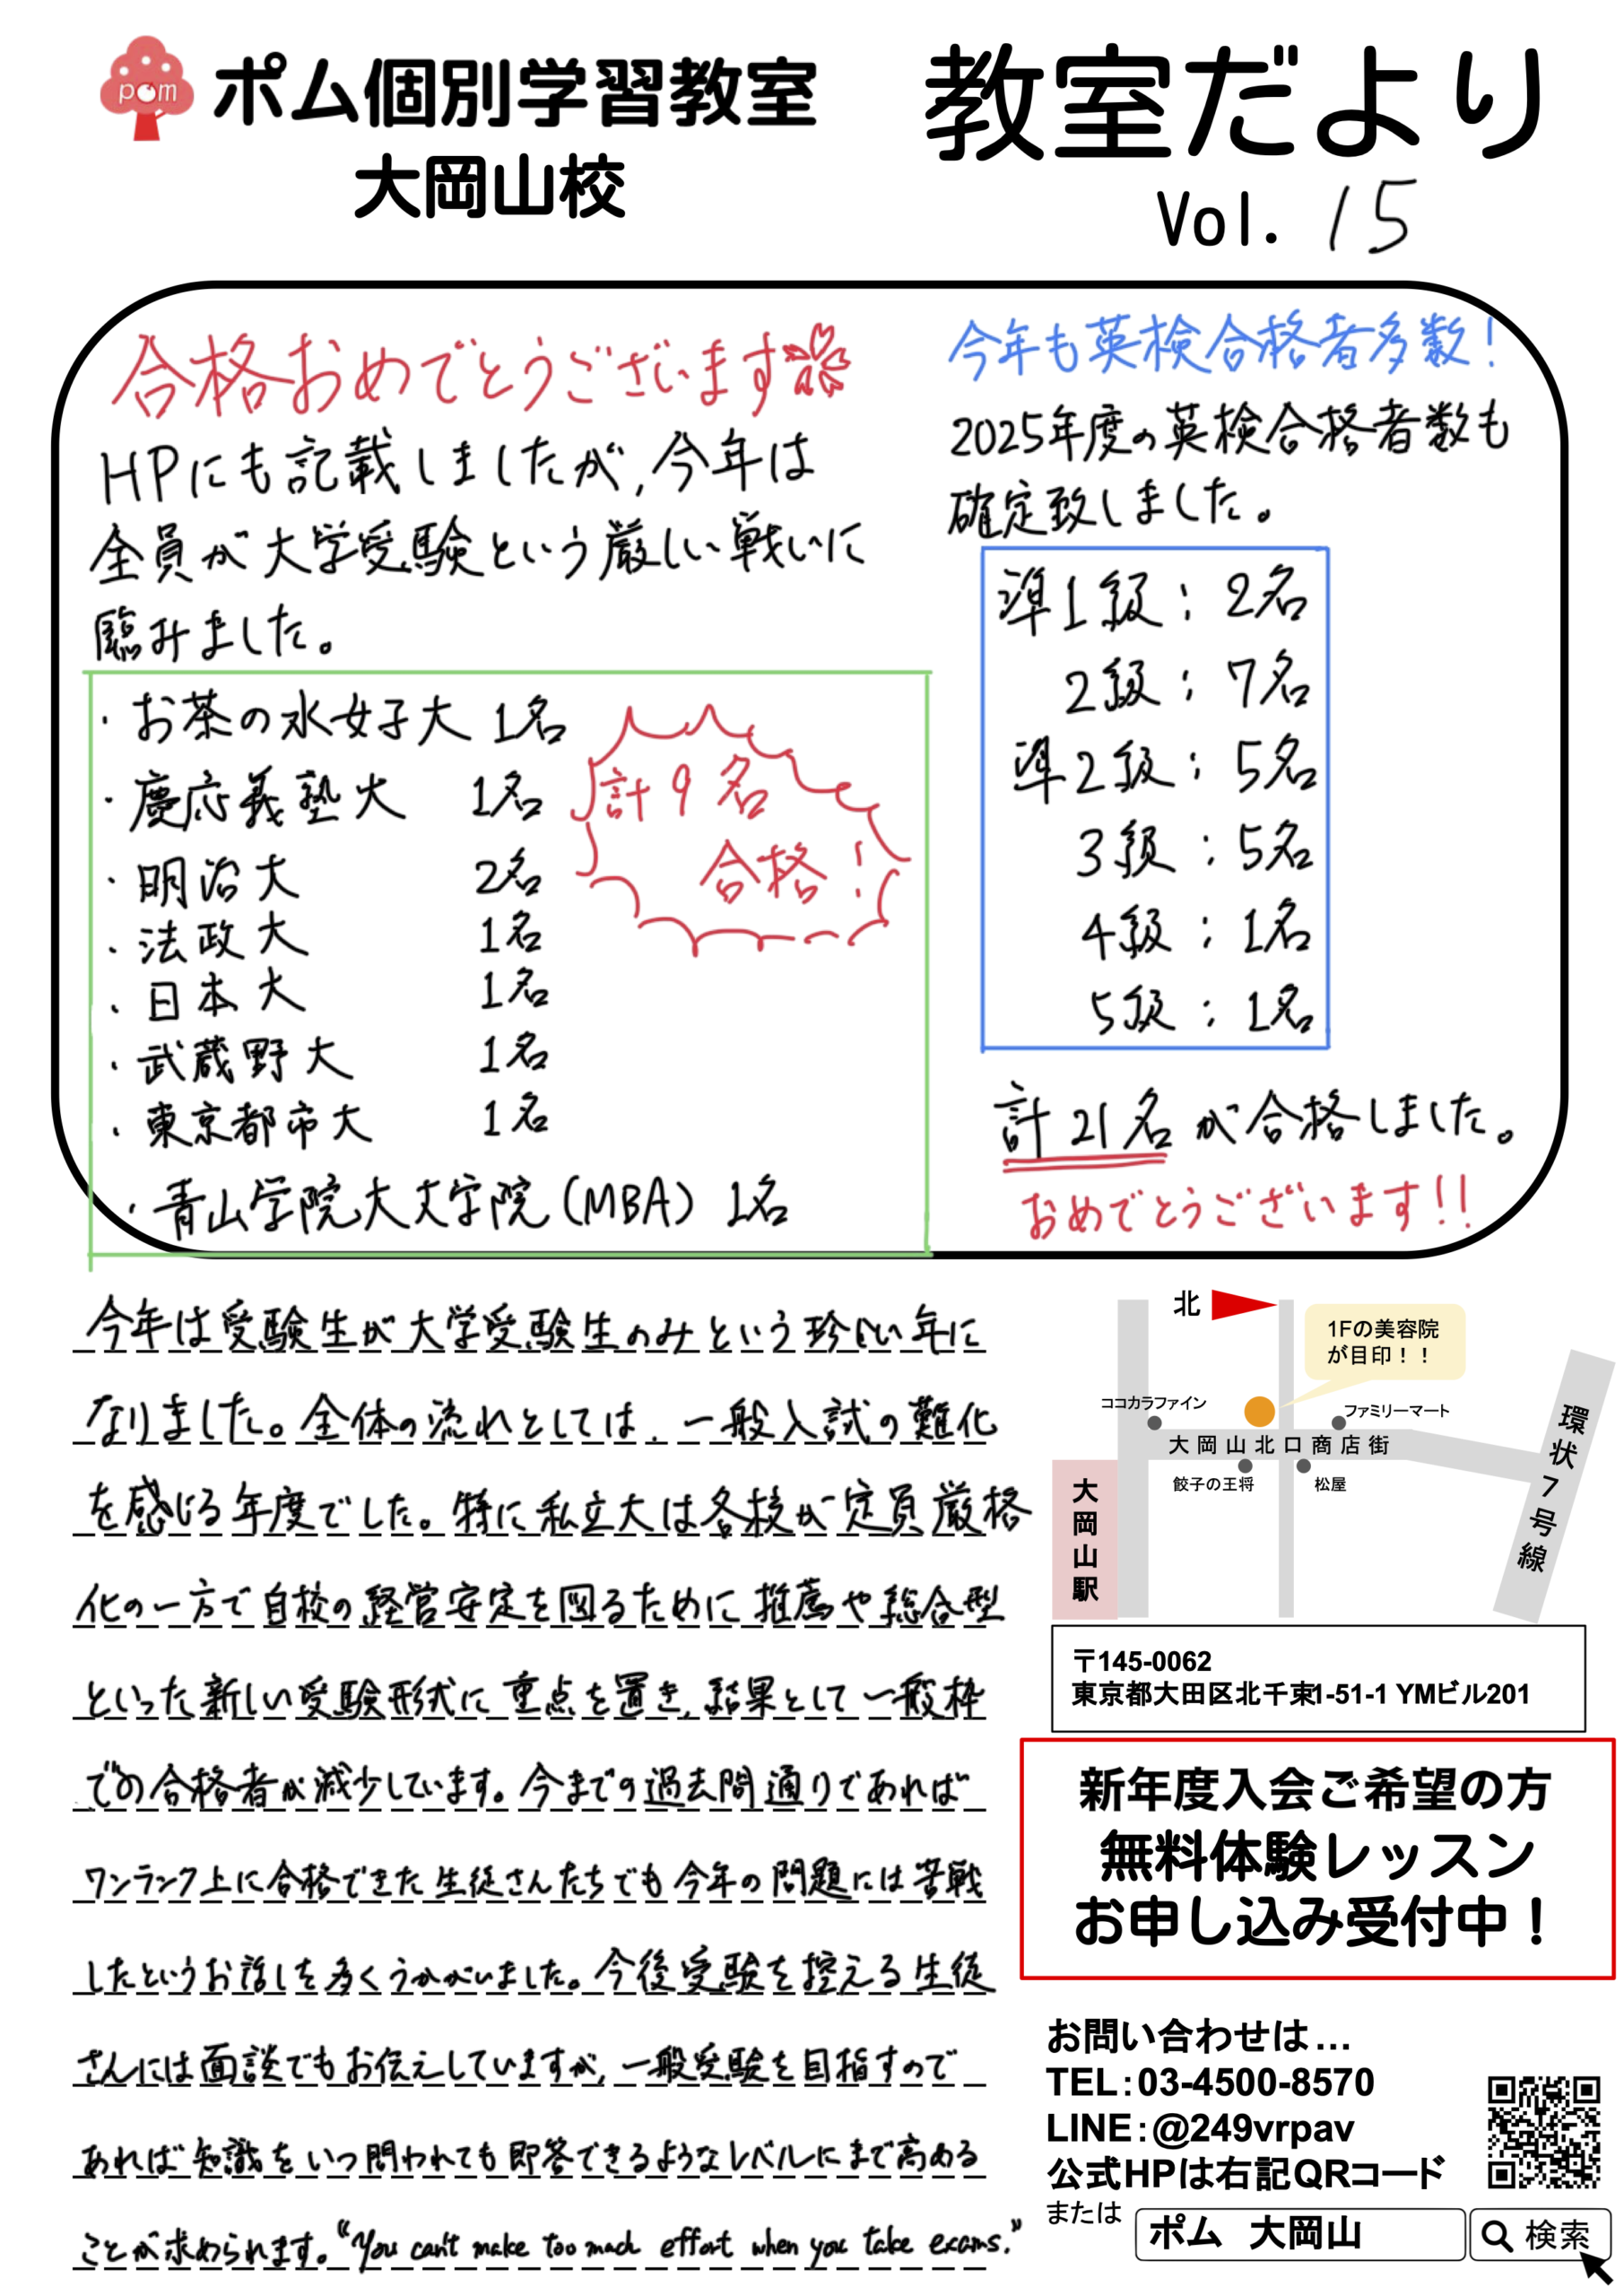 pom
ポム個別学習教室
大岡山校
教室だより
Vol. 15
合格おめでとうございます
HPにも記載しましたが,今年は
全員が大学受験という厳しい戦いに
臨みました。
・お茶の水女子大 1名
・慶応義塾大 1名
・明治大 2名
・法政大 1名
・日本大 1名
・武蔵野大 1名
・東京都市大 1名
・青山学院大大学院(MBA) 1名
計9名
合格!
今年も英検合格者多数!
2025年度の英検合格者数も
確定致しました。
準1級:2名
2級:7名
準2級:5名
3級:5名
4級:1名
5級:1名
計21名が合格しました。
おめでとうございます!!
今年は受験生が大学受験生のみという珍しい年に
なりました。全体の流れとしては、一般入試の難化
を感じる年度でした。特に私立大は各校が定員厳格
化の一方で自校の経営安定を図るために推薦や総合型
といった新しい受験形式に重点を置き,結果として一般枠
での合格者が減少しています。今までの過去問通りであれば
ワンランク上に合格できた生徒さんたちでも今年の問題には苦戦
したというお話しを多くうかがいました。今後受験を控える生徒
さんには面談でもお伝えしていますが,一般受験を目指すので
あれば知識をいつ問われても即答できるようなレベルにまで高める
ことが求められます。“You can't make too much effort when you take exams.”
北
1Fの美容院
が目印!!
ココカラファイン
ファミリーマート
大岡山北口商店街
餃子の王将
松屋
大岡山駅
環状7号線
〒145-0062
東京都大田区北千束1-51-1 YMビル201
新年度入会ご希望の方
無料体験レッスン
お申し込み受付中!
お問い合わせは…
TEL:03-4500-8570
LINE:@249vrpav
公式HPは右記QRコード
または
ポム 大岡山
検索